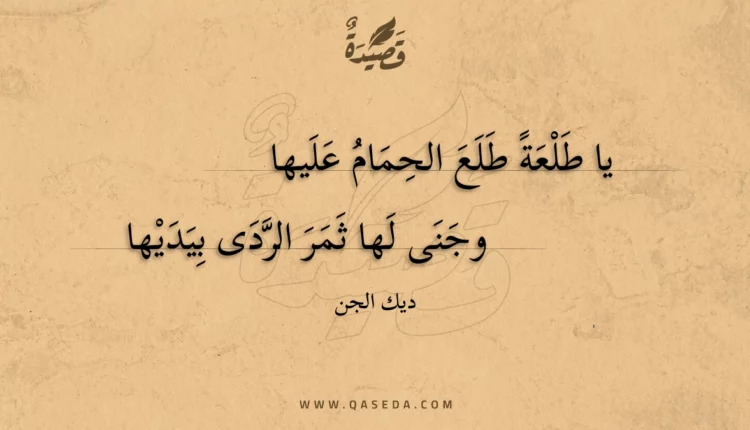 قَصِيْدَةٌ
يا طَلْعَةً طَلَعَ الحِمَامُ عَلَيها
وجَنَى لَها ثَمَرَ الرَّدَى بِيَدَيْها
ديك الجن
WWW.QASEDA.COM